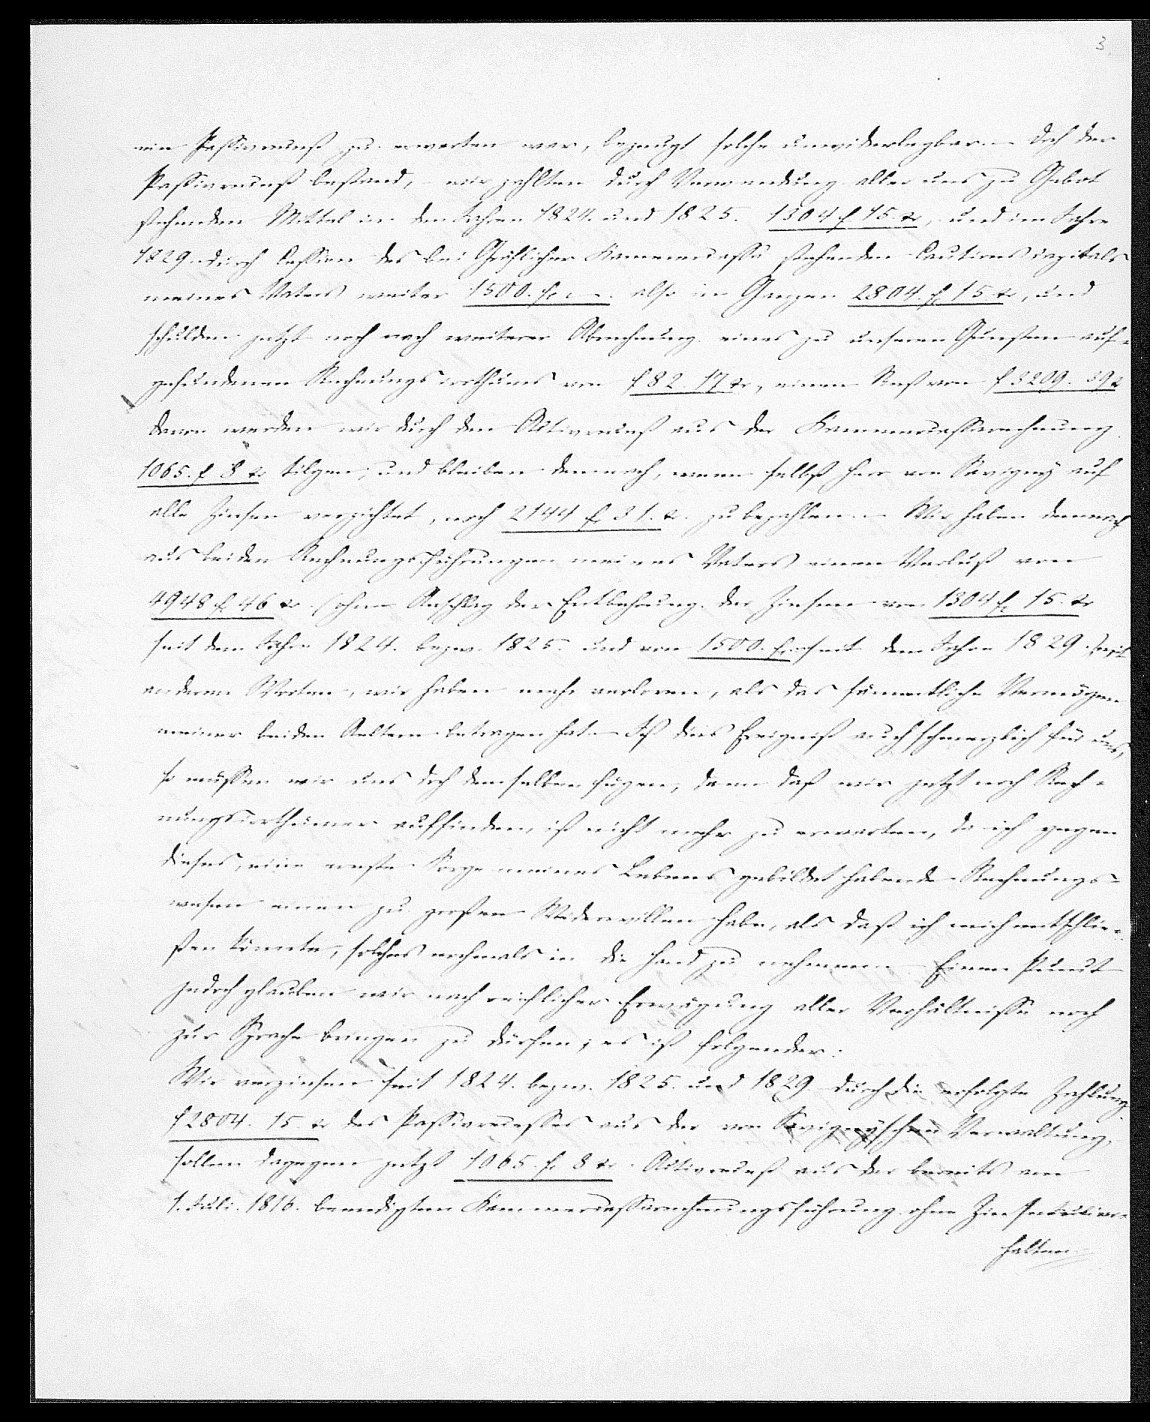 3
ein Passivreceß zu erwarten war, bezeugt solche unwiderlegbar. Doch der
Passivreceß bestand, wir zahlten durch Verwendung aller uns zu Gebot
stehenden Mittel in den Jahren 1824. und 1825. 1304 f 15 xr, und im Jahre
1829. durch Cession des bei Gräflicher Kammercasse stehenden Cautionscapitals
meines Vaters weiter 1500. f. also im Ganzen 2804. f. 15 xr, und
schulden jetzt noch nach weiterer Abrechnung eines zu unseren Gunsten auf-
gefundenen Rechnungsirrthums von f 82 17 xr, einen Rest von f 3209. 39 xr
davon werden wir durch den Activreceß aus der Kammercasserechnung
1065. f 8 xr tilgen, und bleiben demnach, wenn selbst Herr von Savigny auf
alle Zinsen verzichtet, noch 2144 f. 31. xr. zu bezahlen. Wir haben demnach
aus beiden Rechnungsführungen meines Vaters einen Verlust von
4948 f. 46 xr (ohne Anschlag der Entbehrung der Zinsen von 1304 f. 15. xr
seit dem Jahre 1824. bezw. 1825. und von 1500. f. seit dem Jahre 1829. mit
anderen Worten, wir haben mehr verloren, als das sämmtliche Vermögen
meiner beiden Aeltern betragen hat. Ist dies Ereigniß auch schmerzlich für uns,
so müssen wir uns doch demselben fügen, denn daß wir jetzt noch Rech-
nungsirrthümer auffinden, ist nicht mehr zu erwarten, da ich gegen
dieses, eine ernste Sorge meines Lebens gebildet habende Rechnungs-
wesen einen zu großen Widerwillen habe, als daß ich mich entschlie-
ßen könnte, solches nochmals in die Hand zu nehmen. Einen Punct
jedoch glauben wir nach reiflicher Erwägung aller Verhältnisse noch
zur Sprache bringen zu dürfen, es ist folgender:
Wir verzinsen seit 1824. bezw. 1825. und 1829 durch die erfolgte Zahlung
f 2804. 15. xr des Passivrecesses aus der von Savignyschen Verwaltung,
sollen dagegen jetzt 1065. f. 8 xr. Activreceß aus der bereits am
1. Juli. 1816. beendigten Kammercasserechnungsführung ohne Zinsen er-
halten